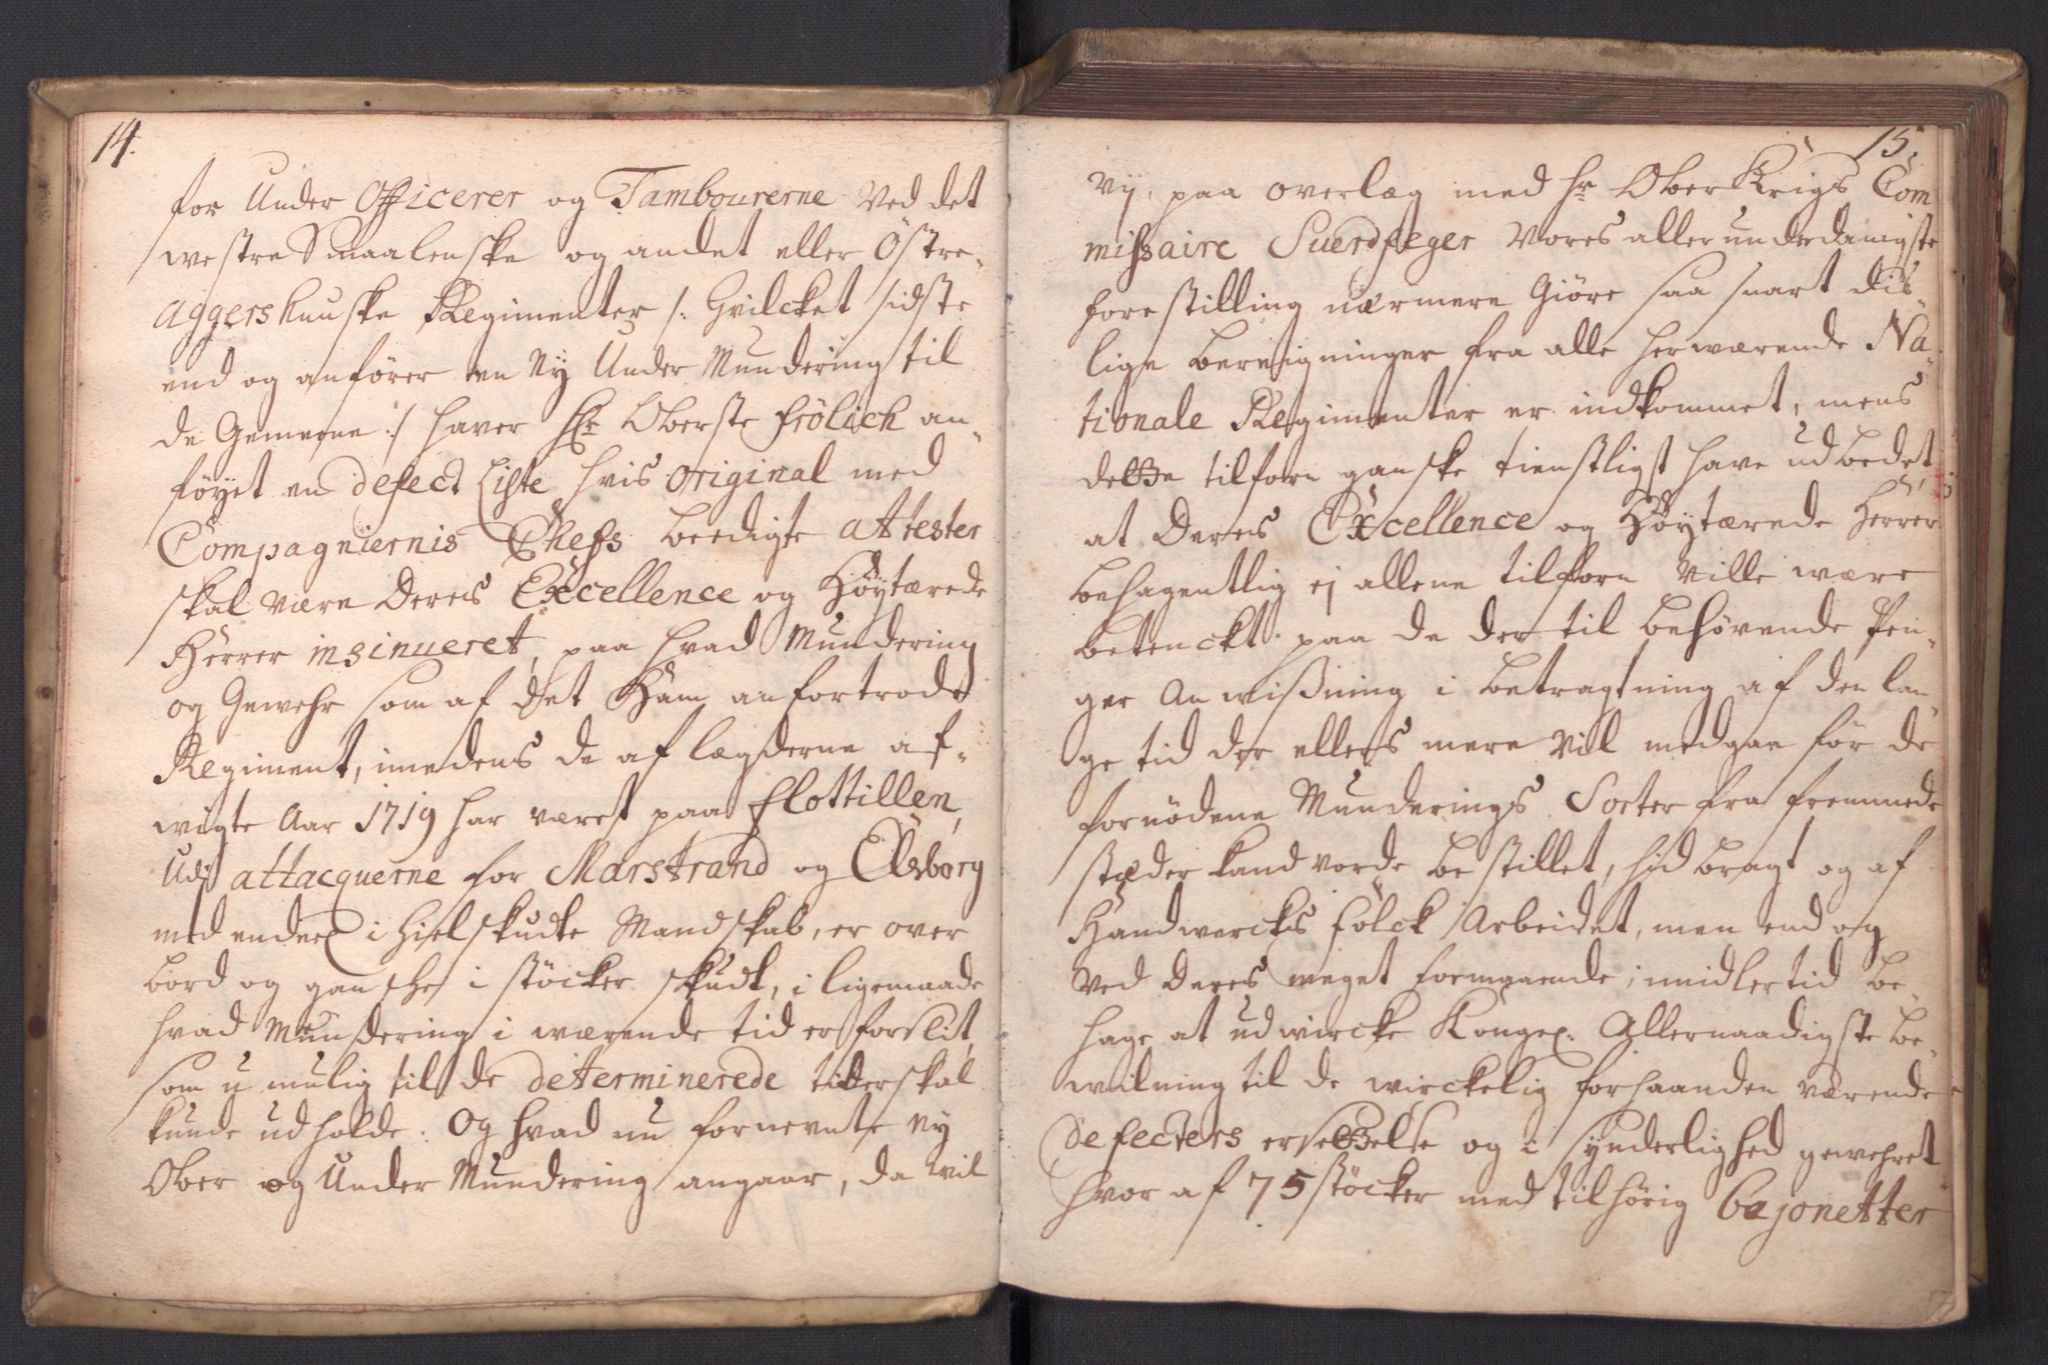 14.
for Under Officerer og Tambourerne Ved det
westre Smaalenske og andet eller Östre,,
Aggershuuske Regimenter /: Hvilcket sidste
end og anfører en Ny Under Mundering til
de Gemeene :/ haver Hr Oberste Frölich an,,
føyet en defect Liste hvis original med
Compagniernis Chefs beedigte attester
skal være Deres Excellence og Höytærede
Herrer insinueret, paa hvad Mundering
og Gewehr som af det Ham anfortrode
Regiment, imedens de af lægderne af,,
wigte Aar 1719 har været paa flottillen,
Udj attacquerne for Marstrand og Elsborg
med endeel ihielskudte Mandskab, er over
bord og gansche i stöcker skudt, i ligemaade
hvad Mundering i wærende tid er forslit,
som u mulig til de determinerede tider skal
kunde udholde: Og hvad nu fornevnte Ny
Ober og Under Mundering angaar, da wil
15.
Vij, paa overlæg med Hr Ober Krigs Com
missaire Suerdfeger Vores allerunderdanigste
forestilling nærmere Giöre saa snart dis,,
lige bereigninger fra alle herwærende Na,,
tionale Regimenter er indkommet, mens
dette tilforn ganske tienstligst have udbedet,
at Deres Excellence og Höytærede Herrer
behagentlig ej allene tilforn Ville være
betenckt paa de der til behövende Pen,,
ger Anwißning i betragtning af den lan,,
ge tid der ellers mere Vil medgaa för de
fornödene Munderings Sorter fra fremmede
stæder kand vorde bestillet, hid bragt og af
Handwercks Folck Arbeidet, men end og
ved Deres meget formaaende, imidlertid be,,
hage at udwircke Kongel: Allernaadigste be,,
wilning til de wirckelig forhaanden værende
defecters ersettelse og i synderlighed gewehret
hvor af 75 stöcker med tilhörig bajonetter